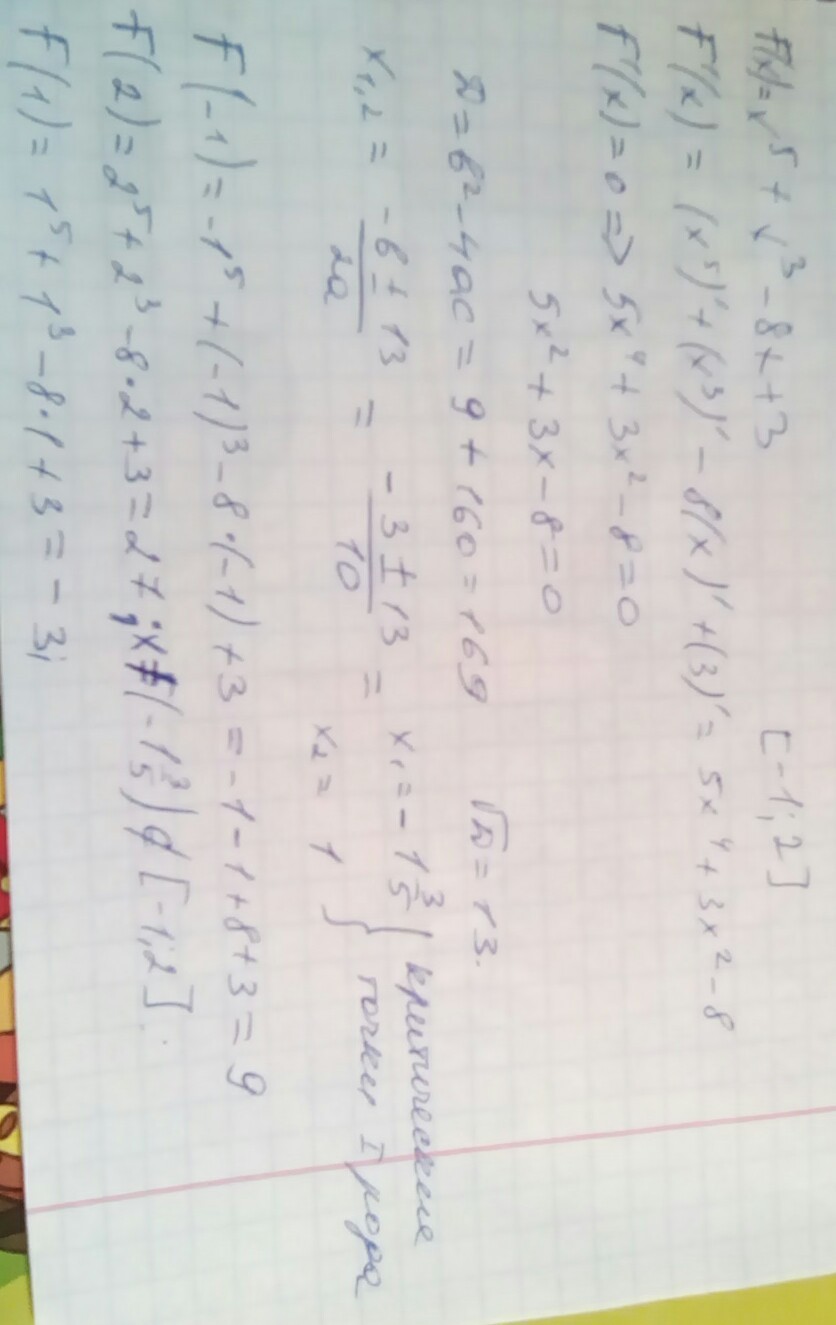 F(x) = x⁵ + x³ - 8x + 3 [-1; 2]
F'(x) = (x⁵)' + (x³)' - 8(x)' + (3)' = 5x⁴ + 3x² - 8
F'(x) = 0 => 5x⁴ + 3x² - 8 = 0
5x² + 3x - 8 = 0
D = b² - 4ac = 9 + 160 = 169 √D = 13.
x₁,₂ = (-b ± 13)/2a = (-3 ± 13)/10 = x₁ = -1 3/5 } критические
x₂ = 1 точки I рода
F(-1) = -1⁵ + (-1)³ - 8·(-1) + 3 = -1 - 1 + 8 + 3 = 9
F(2) = 2⁵ + 2³ - 8·2 + 3 = 27; x = (-1 3/5) ∉ [-1; 2].
F(1) = 1⁵ + 1³ - 8·1 + 3 = -3;